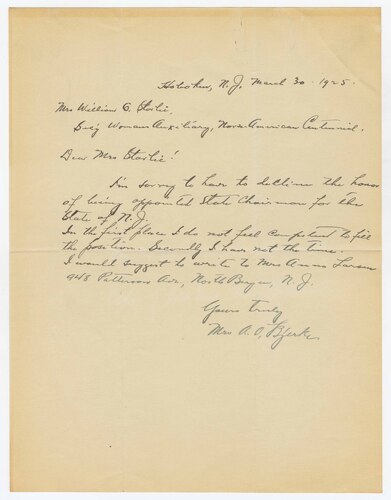 Hoboken, N.J. March 30 - 1925.
Mrs William C. Storlie,
Sec'y Womans Auxiliary, Norse American Centennial.
Dear Mrs Storlie!
I'm sorry to have to decline the honor
of being appointed State Chairman for the
State of N.J.
In the first place I do not feel competent to fill
the position. Secondly I have not the time.
I would suggest to write to Mrs Anna Larson
948 Patterson Ave, North Bergen, N. J.
Yours truly
Mrs A. O. Bjerke.